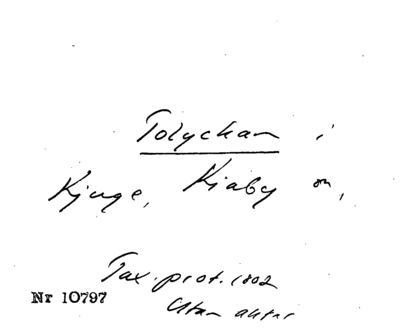 Tolyckan i
Kjuge, Kiaby sn,
Tax. prot. 1802
Utan aktnr
Nr 10797